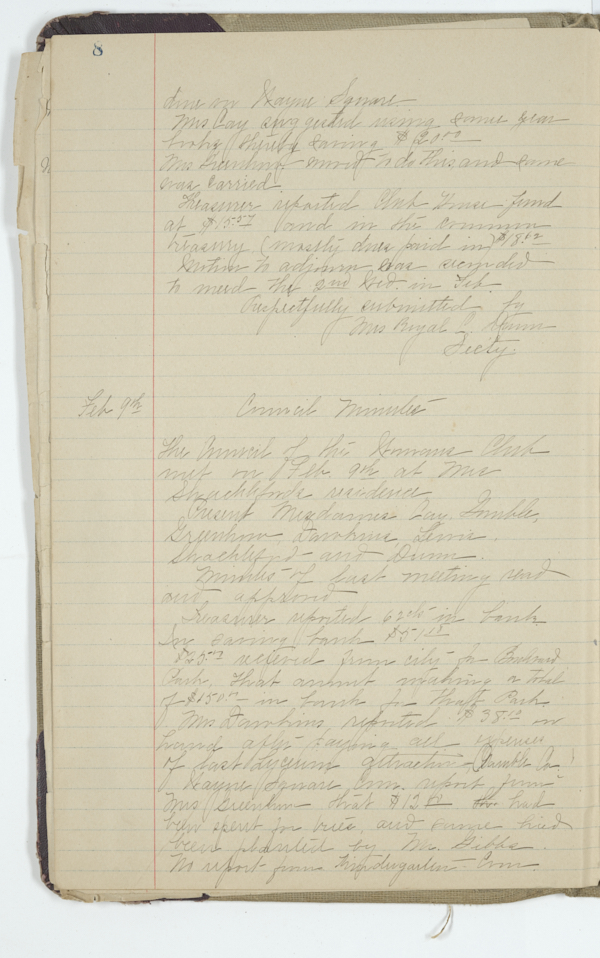 8
done on Wayne Square.
Mrs Cay suggested using same year
books, thereby saving $20.00
Mrs Greenhow moved to do this and same
was carried.
Treasurer reported Club House fund
at $15.57 and in the common
treasury (mostly dues paid in) $18.
Motion to adjourn was seconded
to meet the 2nd Wed. in Feb.
Respectfully submitted by
Mrs Royal Dunn
Secty.
Feb 9th Council Minutes
The Council of the Womans Club
met on Feb. 9th at Mrs
Shacklefords residence
Present Mesdames Cay, Trimble,
Greenhow, Dawkins, Lewis,
Shackleford and Dunn.
Minutes of last meeting read
and approved
Treasurer reported 62cts in bank.
In saving bank $51.
received from city for
Park, that amnt making a total
of $150.00 in bank for that Park
Mrs Dawkins reported $38. on
hand after paying all expenses
of last Lyceum attraction
Wayne Square Com. report from
Mrs Greenhow that $13. had
been spent for trees, and same had
been planted by Mr. Gibbs.
No report from Kindergarten Com.